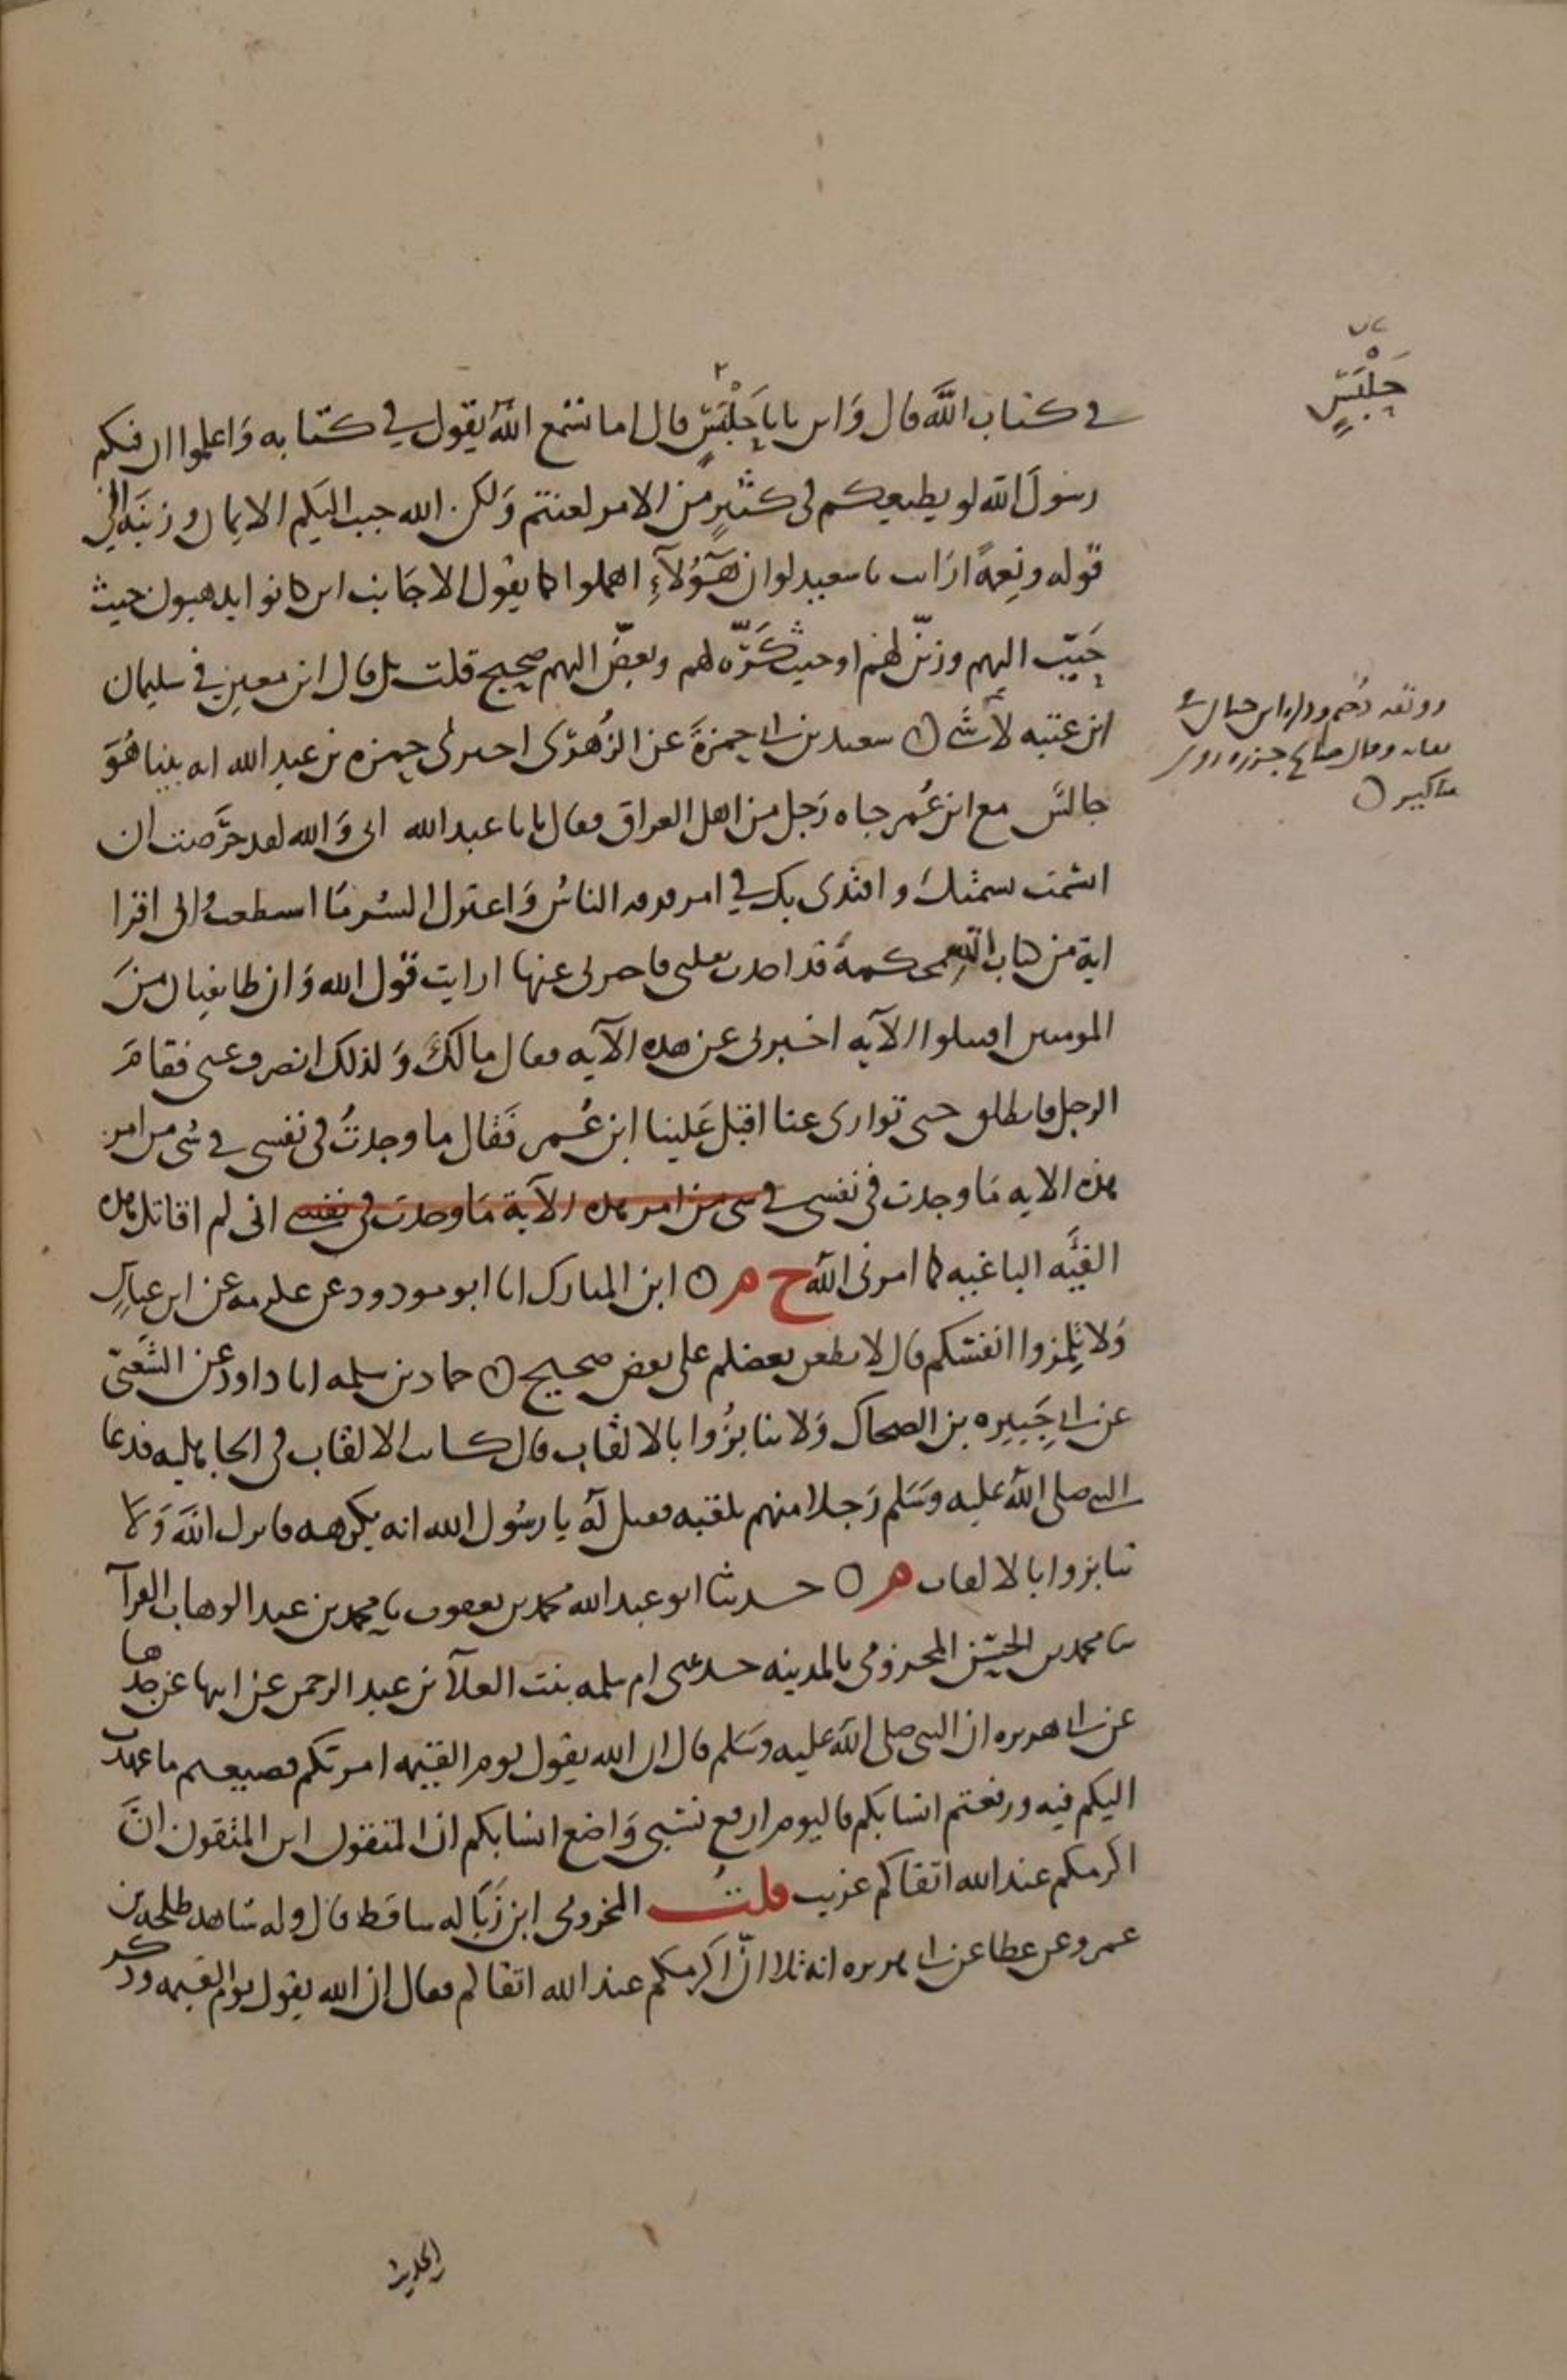 في كتاب الله قال واين يابا حلبس قال اما تسمع الله يقول في كتابه واعلموا ان فيكم
رسول الله لو يطيعكم في كثير من الامر لعنتم ولكن الله حبب اليكم الايمان وزينه الى
قوله ونعمة ارايت يا سعيد لو ان هؤلاء اهملوا كما يقول الاجانب اين كانوا يذهبون حيث
حبب اليهم وزين لهم او حيث كره لهم وبغض اليهم صحيح قلت بل قال ابن معين في سليمان
ابن عتبه لا شى ○ سعيد بن ابي حمزة عن الزهري اخبرني حمزه بن عبد الله انه بينا هو
جالس مع ابن عمر جاه رجل من اهل العراق فقال يابا عبد الله اني والله لقد حرصت ان
اتسمت سمتك واقتدى بك في امر فرقه الناس واعتزل الشر ما استطعت واني اقرا
اية من كتاب الله محكمة قد اخذت بقلبي فاخبرني عنها ارايت قول الله وان طايفتان من
المومنين اقتتلوا الآيه اخبرني عن هذه الآيه فقال مالك ولذلك انصرف عني فقام
الرجل فانطلق حتى توارى عنا اقبل علينا ابن عمر فقال ما وجدت في نفسي في شى من امر
هذه الايه ما وجدت في نفسي في شى من امر هذه الآية ما وجدت في نفسي اني لم اقاتل هذه
الفئه الباغيه كما امرني الله ح م ○ ابن المبارك انا ابو مودود عن عكرمه عن ابن عباس
ولا تلمزوا انفسكم قال لا يطعن بعضكم على بعض صحيح ○ حماد بن سلمه انا داود عن الشعبي
عن ابي جبيره بن الضحاك ولا تنابزوا بالالقاب قال كانت الالقاب في الجاهليه فدعا
النبي صلى الله عليه وسلم رجلا منهم بلقبه فقيل له يا رسول الله انه يكرهه فانزل الله ولا
تنابزوا بالالقاب م ○ حدثنا ابو عبد الله محمد بن يعقوب نا محمد بن عبد الوهاب الفرآ
نا محمد بن الحسن المخزومي بالمدينه حدثتني ام سلمه بنت العلآ بن عبد الرحمن عن ابيها عن جدها
عن ابي هريره ان النبي صلى الله عليه وسلم قال ان الله يقول يوم القيمه امرتكم فضيعتم ما عهدت
اليكم فيه ورفعتم انسابكم فاليوم ارفع نسبي واضع انسابكم اين المتقون اين المتقون ان
اكرمكم عند الله اتقاكم غريب قلت المخزومي ابن زباله ساقط قال وله شاهد طلحه بن
عمرو عن عطا عن ابي هريره انه تلا ان اكرمكم عند الله اتقاكم فقال ان الله يقول يوم القيمه وذكر
الحديث
حلبس
ووثقه دحيم وذكره ابن حبان في
ثقاته وقال صالح جزره روى
مناكير ○